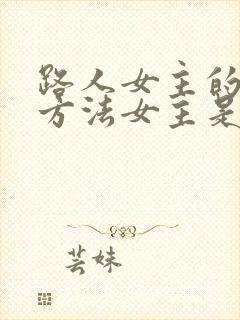 路人女主的
方法女主是
芸妹